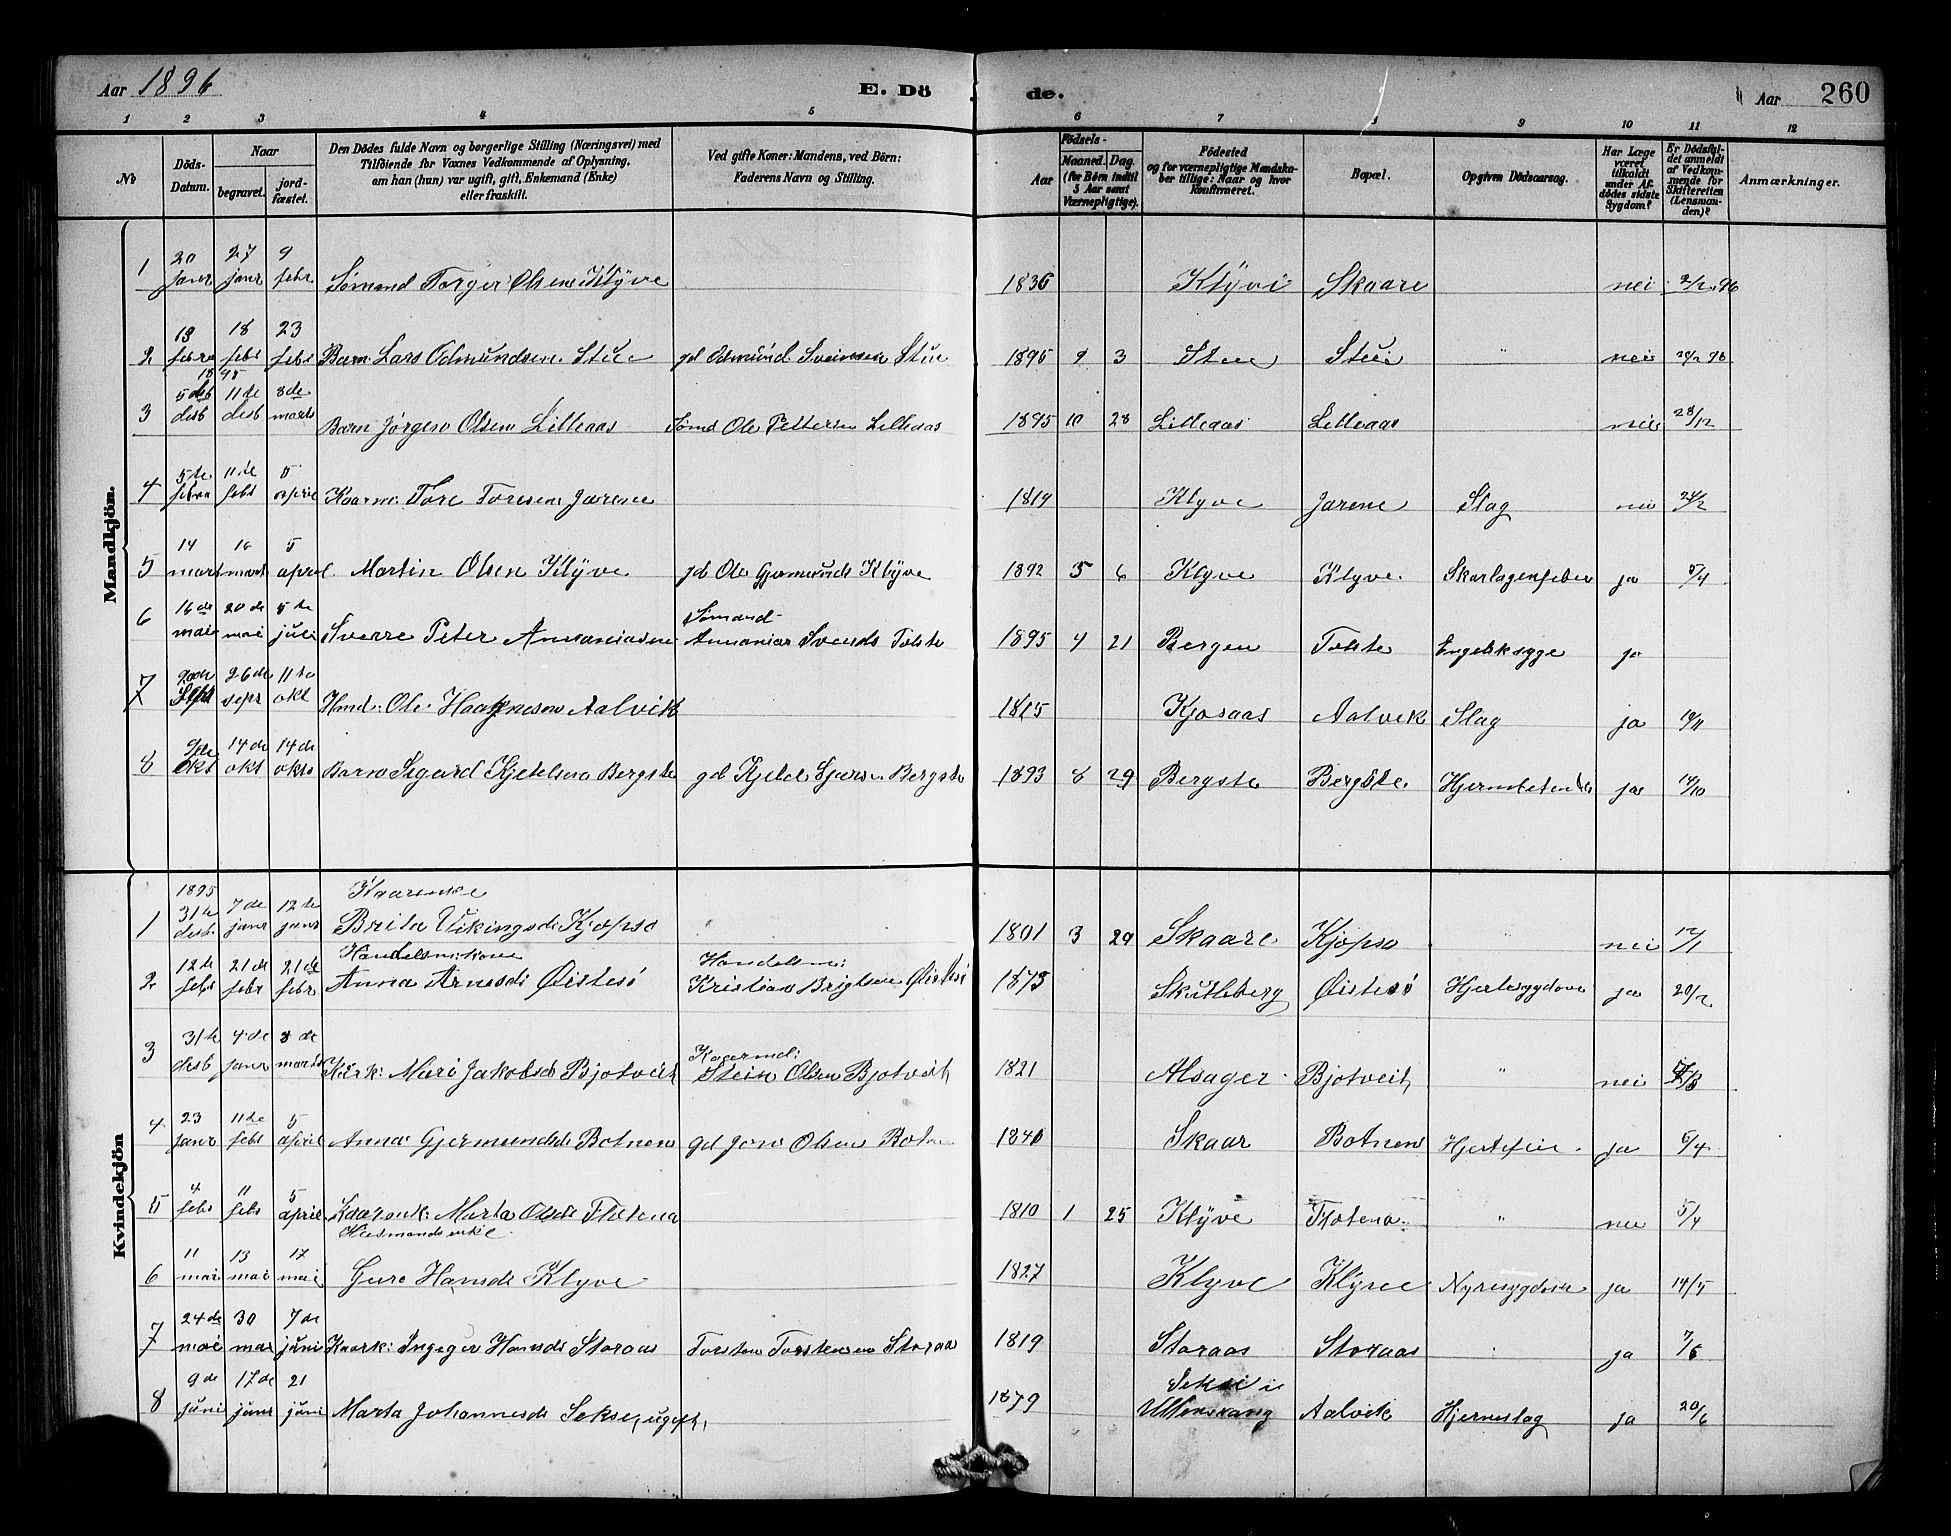 Aar 1896 E. Döde. Aar 260
1 2 3 4 5 6 7 8 9 10 11 12
№
Döds-Datum.
Naar
begravet.
jordfæstet.
Den Dödes fulde Navn og borgerlige Stilling (Næringsvei) med
Tilföiende for Voxnes Vedkommende af Oplysning,
om han (hun) var ugift, gift, Enkemand (Enke)
eller fraskilt.
Ved gifte Koner: Mandens, ved Börn:
Faderens Navn og Stilling.
Födsels-
Aar
Maaned. Dag.
(for Börn indtil
5 Aar samt
Værnepligtige).
Födested
og for værnepligtige Mandskaber tillige: Naar og hvor
konfirmeret.
Bopæl.
Opgiven Dödsaarsag.
Har Læge
været
tilkaldt
under Afdödes sidste
Sygdom?
Er Dödsfaldet anmeldt
af Vedkommende for
Skifteretten
(Lensmanden)?
Anmærkninger.
Mandkjön.
1 20 janr 27 janr 9 febr Sømand Torger Olsen Klyve 1836 Klyve Skaare nei 2/2 96
2 13 febr 18 febr 23 febr Barn Lars Odmundsen Stue gd Odmund Sveinsen Stue 1895 9 3 Stue Stue " nei 24/2 96
3 1895 5 desb 11de desb 8de marts Barn Jörgen Olsen Lilleaas Sømd Ole Pettersen Lilleaas 1895 10 28 Lilleaas Lilleaas nei 28/12
4 5te febr 11te febr 5 april Kaarm: Tore Toresen Jarene 1819 Klyve Jarene Slag nei 24/2
5 14 mart 16 mart 5 april Martin Olsen Klyve gd Ole Gjermunds Klyve 1892 5 6 Klyve Klyve Skarlagensfeber ja 5/4
6 16de mai 20de mai 5te juli Sverre Peter Annaniasen Sømand Annanias Svends Tolste 1895 4 21 Bergen Tolste Engelsksyge ja
7 20de Sept 26de sepr 11te okt Hmd: Ole Haagnesen Aalvik 1815 Kjosaas Aalvik Slag ja
8 9de okt 14de okt 14de okt Barn Sigurd Kjetelsen Bergste gd Kjetel Sjursen Bergste 1893 8 29 Bergste Bergste Hjernebetendelse ja 14/10
Kvindekjön
1 1895 31te desb. 7de janr 12te janr Kaarenke Brita Vikingsd: Kjøpsø 1801 3 29 Skaare Kjøpsø " nei 12/1
2 12te febr 21de febr 21de febr Handelsmkone Anna Arnesd: Øistesö Handelsm: Kristian Brigtsen Øistesö 1873 Skutleberg Øistesö Hjertesygdom ja 20/2
3 31te desb 4de janr 8de marts Kaark: Mari Jakobsd: Bjotveit Kaarmd: Stein Olsen Bjotveit 1821 Alsager Bjotveit " nei
4 23 janr 11de febr 5 april Anna Gjermundsd: Botnen gd Jon Olsen Botnen 1846 Skaar Botnen Hjertefeil ja 5/4
5 4 febr 11 febr 5 april Kaarenk: Marta Olsd: Flotena 1810 1 25 Klyve Flotena " nei 5/4
6 11 mai 13 mai 17 mai Husmandsenke Guro Hansd: Klyve 1827 Klyve Klyve Nyresygdom ja 14/5
7 24de mai 30 mai 7de juni Kaark: Ingeger Hansd: Storaas Torsten Torstensen Storaas 1819 Storaas Storaas " ja 7/6
8 9de juni 17de juni 21 juni Marta Johannesd: Sekse, ugift, 1879 Sekse i Ullensvang Aalvik Hjerneslag ja 20/6